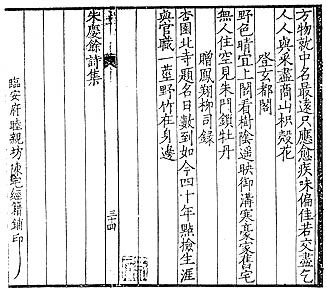 方物就中名最遠只應愈疾味偏佳若交盡乞
人人與采盡商山枳殼花
登玄都閣
野色晴宜上閣看樹陰遥映御溝寒豪家舊宅
無人住空見朱門鎖牡丹
贈鳳翔柳司録
杏園北寺題名日數到如今四十年點檢生涯
與官職一莖野竹在身邊
三十四
朱慶餘詩集
臨安府睦親坊陳宅經籍鋪印